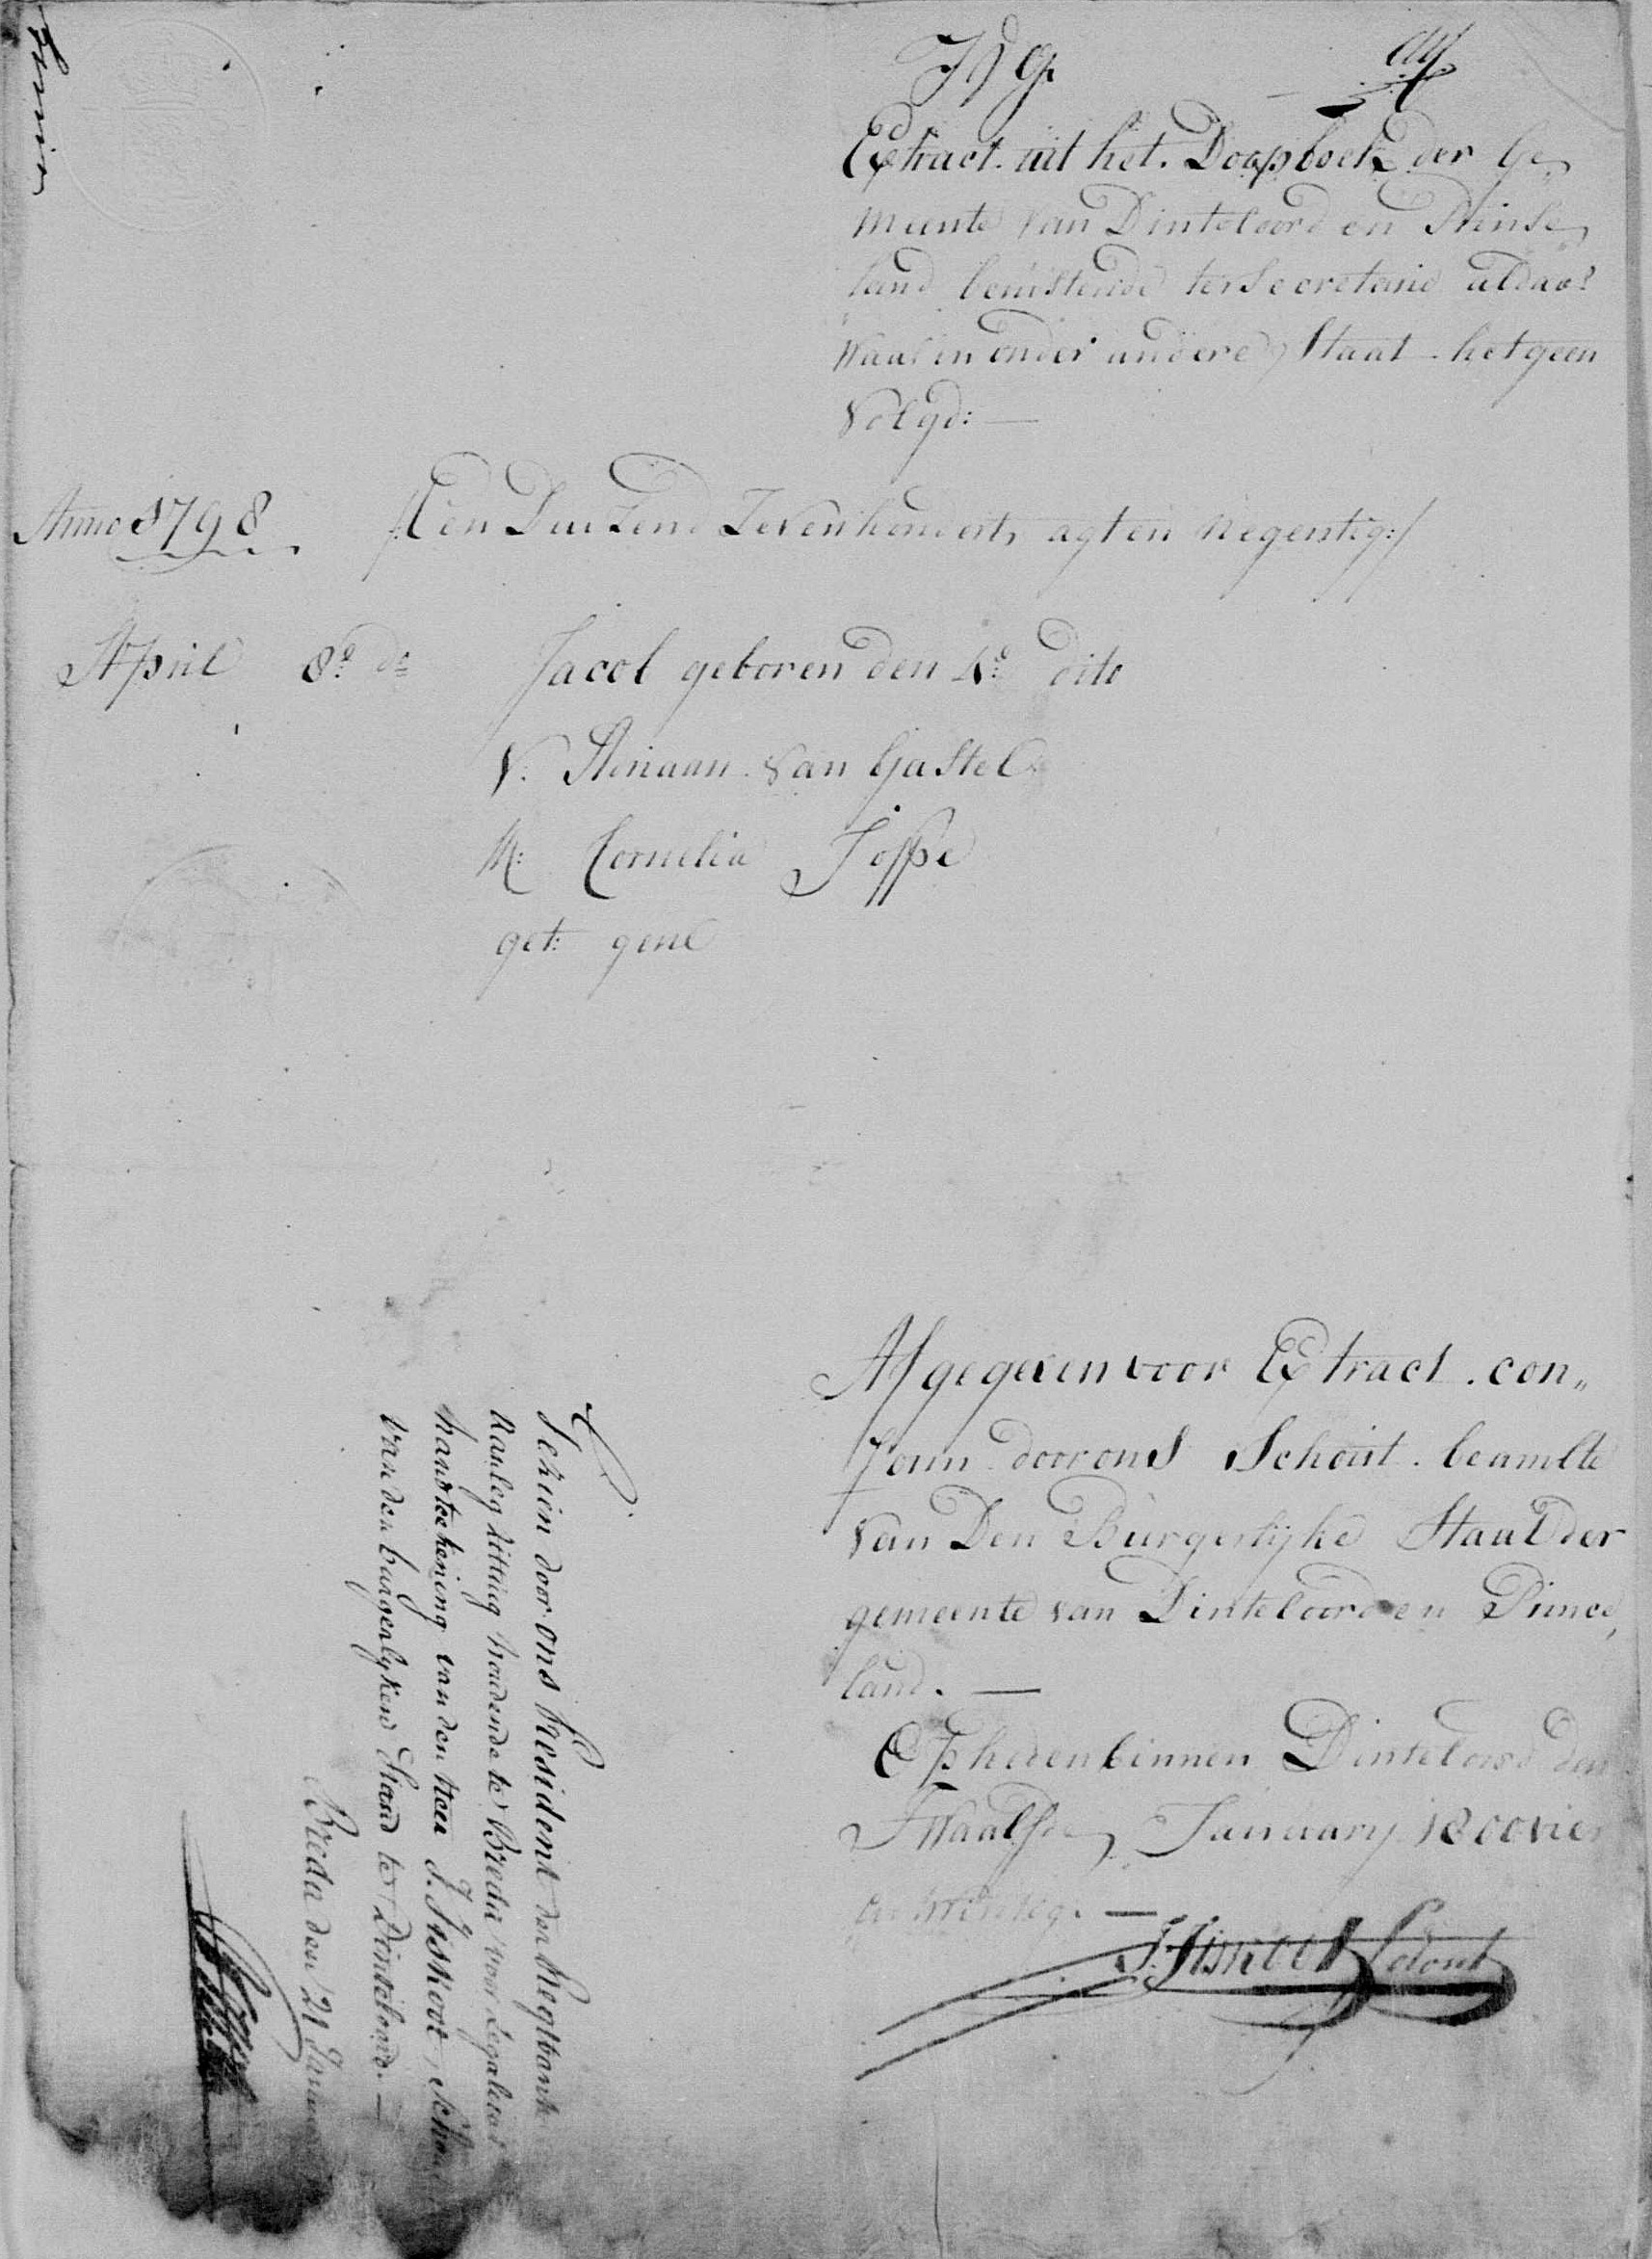 Extract uit het Doopboek der Ge„
meente van Dinteloord en Prinse„
land berustende ter Secretarie aldaar
Waar in onder andere Staat hetgeen
Volgd: —
Anno 1798 Een Duizend Zevenhondert, agt en Negentig:/
April 8e do Jacob geboren den 4e dito
V: Adriaan Van Gastel
M: Cornelia Josse
get: gene
Afgegeven voor Extract con„
form door ons Schout beamte
van Den Burgerlijke Staat der
gemeente van Dinteloord en Prince„
land. —
Op heden binnen Dinteloord den
Twaalfde January 1800 vier
en twintig. —
J. Jiskoot Schout
Gezien door ons President der Regtbank
zitting houdende te Breda voor Legalisat
handteekening van den Heer J. Jiskoot, Schout
van den burgerlyken Stand te Dinteloord. —
Breda den 21 Janu